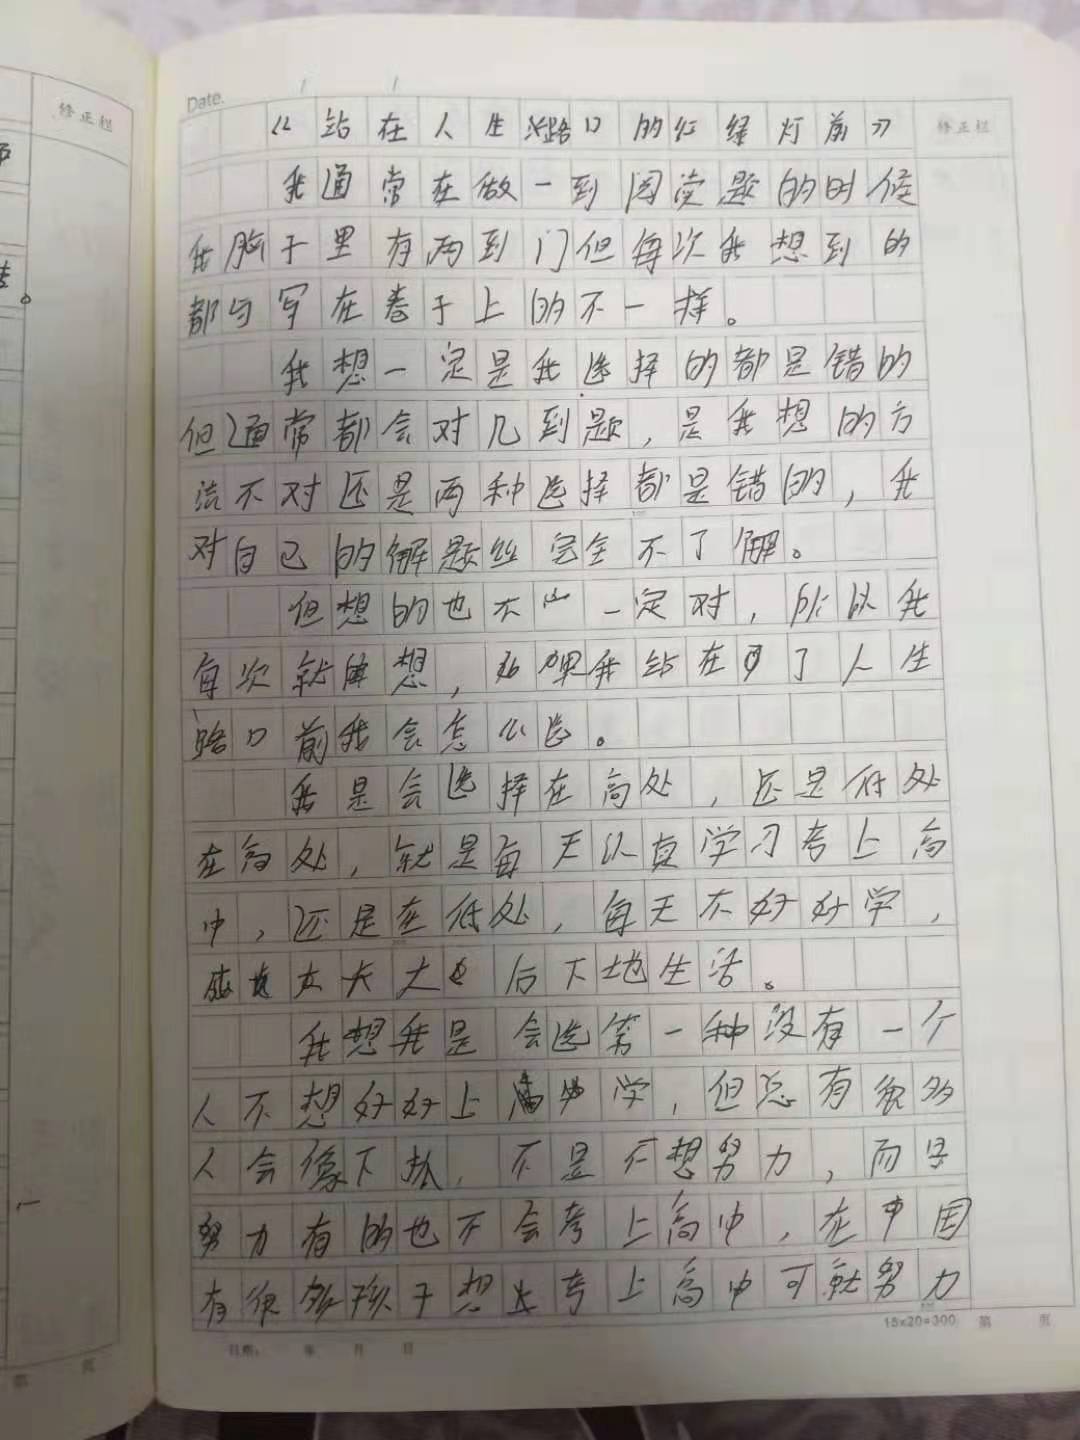 修正栏
Date.
《站在人生路口的红绿灯前》
修正栏
我通常在做一到阅读题的时候
我脑子里有两到门但每次我想到的
都与写在卷子上的不一样。
我想一定是我选择的都是错的
但通常都会对几到题，是我想的方
法不对还是两种选择都是错的，我
对自己的解题丝完全不了解。
但想的也不一定对，所以我
每次就想，如果我站在了人生
路口前我会怎么选。
我是会选择在高处，还是低处
在高处，就是每天认真学习考上高
中，还是在低处，每天不好好学，
长大后下地生活。
我想我是会选第一种没有一个
人不想好好上学，但总有很多
人会像下，不是不想努力，而是
努力有的也不会考上高中，在中国
有很多孩子想考上高中可就努力
15×20=300 第 页
日期： 年 月 日
第 页